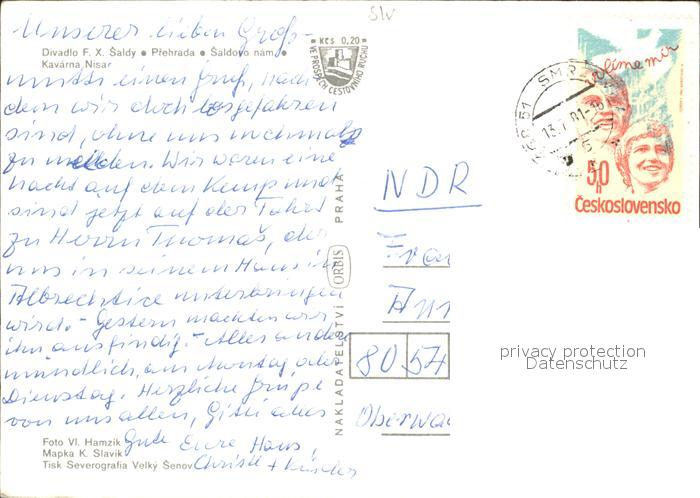 Unserer lieben Groß-
Divadlo F. X. Šaldy • Přehrada • Šaldovo nám. •
Kavárna Nisa
mutti einen Gruß, nach-
dem wir doch losgefahren
sind, ohne uns nochmals
zu melden. Wir waren eine
Nacht auf dem Kemp und
sind jetzt auf der Fahrt
zu Herrn Thomaš, der
uns in seinem Haus in
Albrechtice unterbringen
wird. - Gestern machten wir
ihn ausfindig. - Alles andere
mündlich, am Montag oder
Dienstag. Herzliche Grüße
von uns allen,
Gute Eure Hans,
Christl +
Foto Vl. Hamzík
Mapka K. Slavík
Tisk Severografia Velký Šenov
Kčs 0,20
VE PROSPĚCH CESTOVNÍHO RUCHU
NAKLADATELSTVÍ ORBIS PRAHA
SLV
13.7.81-16
50
h
Československo
NDR
Frau
8054
Oberwa
privacy protection
Datenschutz